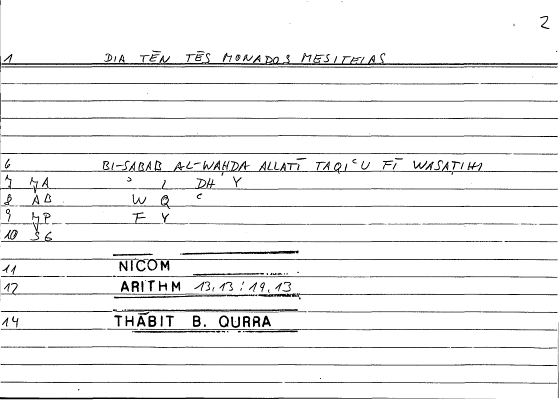 2
1 DIA TĒN TĒS MONADOS MESITEIAS
6 BI-SABAB AL-WAḤDA ALLATĪ TAQIʿU FĪ WASAṬIHI
7 ʾ L DH Y
8 AB W Q ʿ
9 F Y
10
11 NICOM
12 ARITHM 13,13 : 19,13
14 THĀBIT B. QURRA